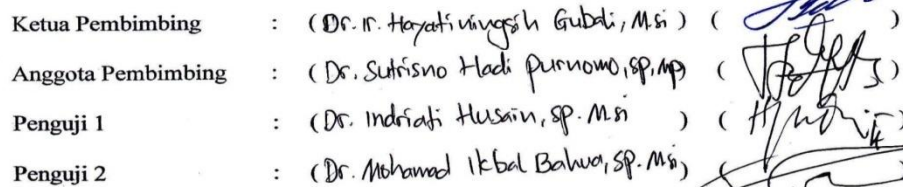 Ketua Pembimbing : (Dr. Ir. Hayatiningsih Gubali, M.si) ( )
Anggota Pembimbing : (Dr. Sutrisno Hadi Purnomo, SP, MP) ( )
Penguji 1 : (Dr. Indriati Husain, SP. M.si ) ( )
Penguji 2 : (Dr. Mohamad Ikbal Bahua, SP. M.si) ( )